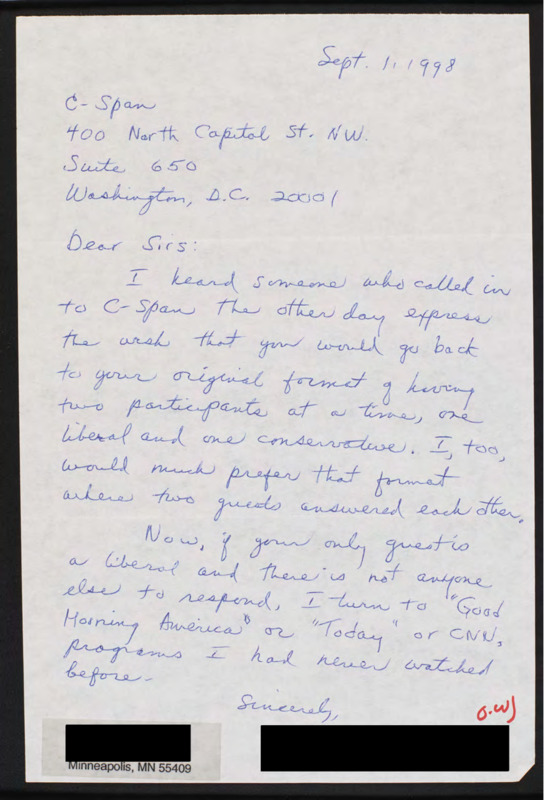 Sept. 1, 1998
C-Span
400 North Capitol St. NW.
Suite 650
Washington, D.C. 20001
Dear Sirs:
I heard someone who called in
to C-Span the other day express
the wish that you would go back
to your original format of having
two participants at a time, one
liberal and one conservative. I, too,
would much prefer that format
where two guests answered each other.
Now, if your only guest is
a liberal and there is not anyone
else to respond, I turn to "Good
Morning America" or "Today" or CNN,
programs I had never watched
before.
Sincerely,
O.WJ
Minneapolis, MN 55409